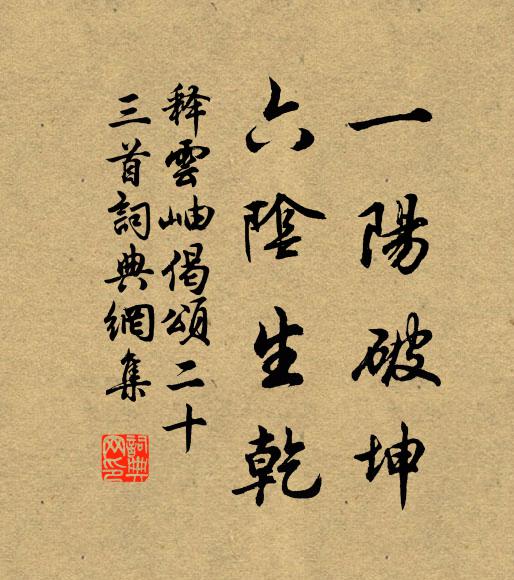 一陽破坤
六陰生乾
释雲岫偈頌二十
三首詞典網集
詞典網印